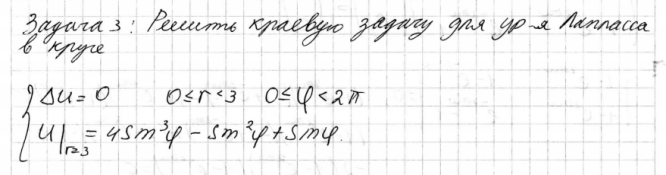 Задача 3: Решить краевую задачу для ур-я Лапласса
в круге
Δu = 0 0 ≤ r < 3 0 ≤ φ < 2π
u|r=3 = 4 sin³φ - sin²φ + sinφ.